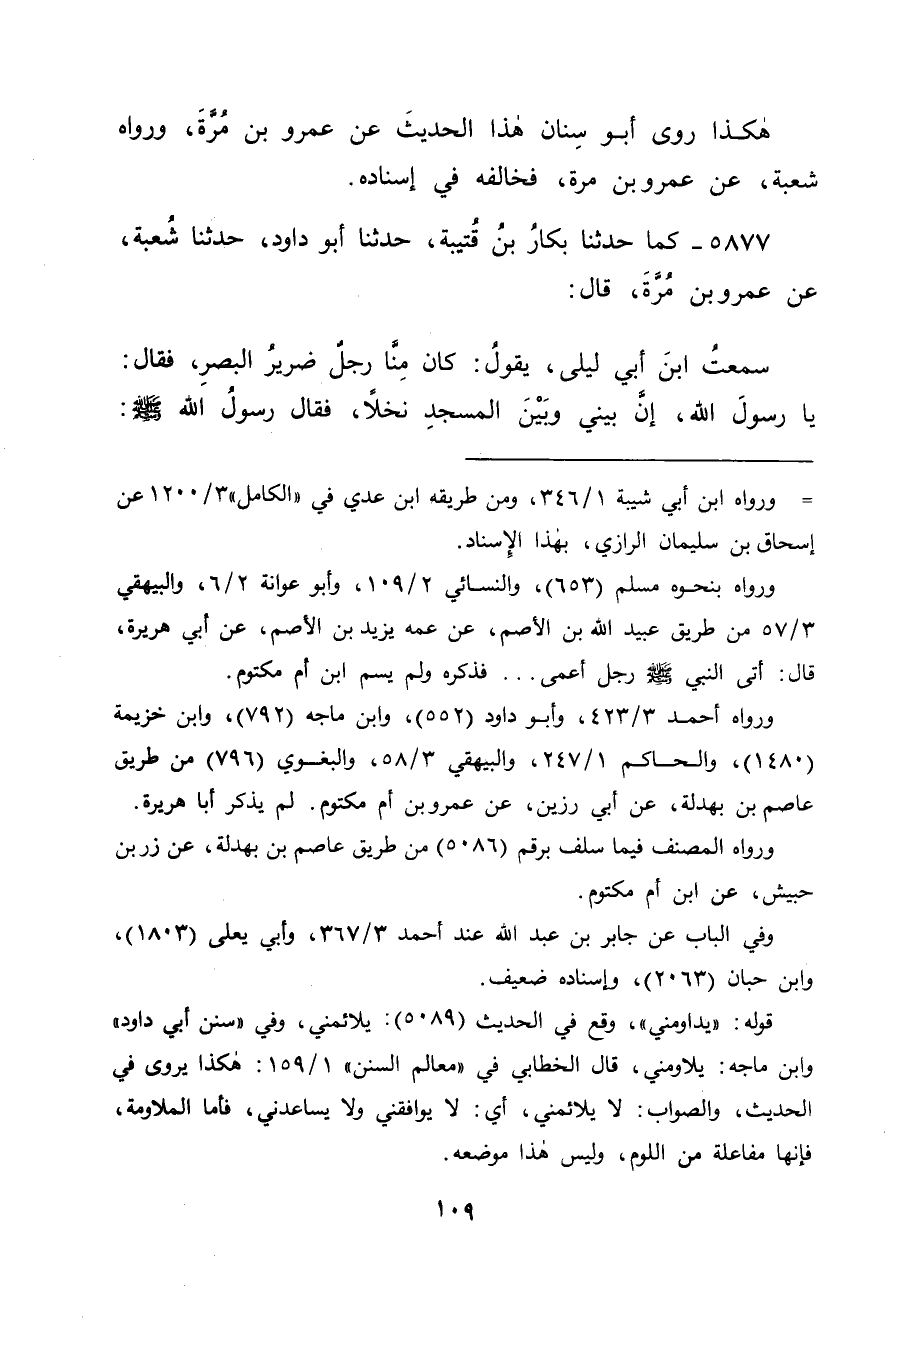 هٰكـذا روى أبـو سِنان هٰذا الحديثَ عن عمرو بن مُرَّةَ، ورواه
شعبة، عن عمرو بن مرة، فخالفه في إسناده.
٥٨٧٧ ـ كما حدثنا بكارُ بنُ قُتيبة، حدثنا أبو داود، حدثنا شُعبة،
عن عمرو بن مُرَّةَ، قال:
سمعتُ ابنَ أبي ليلى، يقولُ: كان مِنَّا رجلٌ ضريرُ البصرِ، فقال:
يا رسولَ الله، إنَّ بيني وبَيْنَ المسجدِ نخلاً، فقال رسولُ الله ﷺ:
= ورواه ابن أبي شيبة ٣٤٦/١، ومن طريقه ابن عدي في «الكامل» ١٢٠٠/٣ عن
إسحاق بن سليمان الرازي، بهٰذا الإسناد.
ورواه بنحـوه مسلم (٦٥٣)، والنسـائي ١٠٩/٢، وأبو عوانة ٦/٢، والبيهقي
٥٧/٣ من طريق عبيد الله بن الأصم، عن عمه يزيد بن الأصم، عن أبي هريرة،
قال: أتى النبي ﷺ رجل أعمى... فذكره ولم يسم ابن أم مكتوم.
ورواه أحمـد ٤٢٣/٣، وأبـو داود (٥٥٢)، وابن ماجه (٧٩٢)، وابن خزيمة
(١٤٨٠)، والـحـاكـم ٢٤٧/١، والبيهقي ٥٨/٣، والبغـوي (٧٩٦) من طريق
عاصم بن بهدلة، عن أبي رزين، عن عمرو بن أم مكتوم. لم يذكر أبا هريرة.
ورواه المصنف فيما سلف برقم (٥٠٨٦) من طريق عاصم بن بهدلة، عن زر بن
حبيش، عن ابن أم مكتوم.
وفي الباب عن جابر بن عبد الله عند أحمد ٣٦٧/٣، وأبي يعلى (١٨٠٣)،
وابن حبان (٢٠٦٣)، وإسناده ضعيف.
قوله: «يداومني»، وقع في الحديث (٥٠٨٩): يلائمني، وفي «سنن أبي داود»
وابن ماجه: يلاومني، قال الخطابي في «معالم السنن» ١٥٩/١: هٰكذا يروى في
الحديث، والصواب: لا يلائمني، أي: لا يوافقني ولا يساعدني، فأما الملاومة،
فإنها مفاعلة من اللوم، وليس هٰذا موضعه.
١٠٩